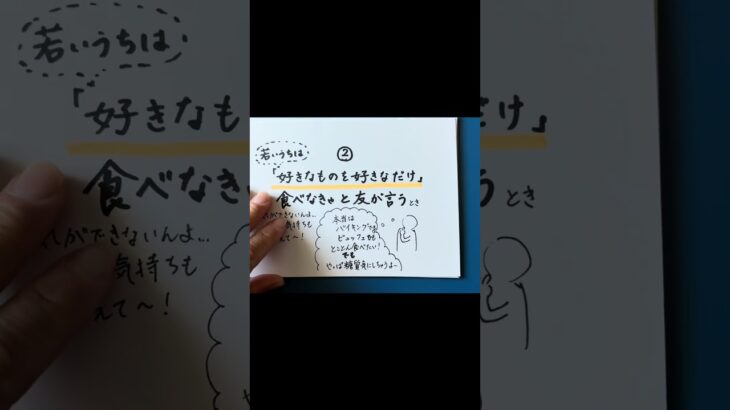 若いうちは
②
「好きなものを好きなだけ」
食べなきゃと友が言うとき
ができないんよ…
気持ちも
えて〜！
本当は
バイキングでも
ビュッフェでも
とことん食べたい！
でも
やっぱ糖質気にしちゃうよー